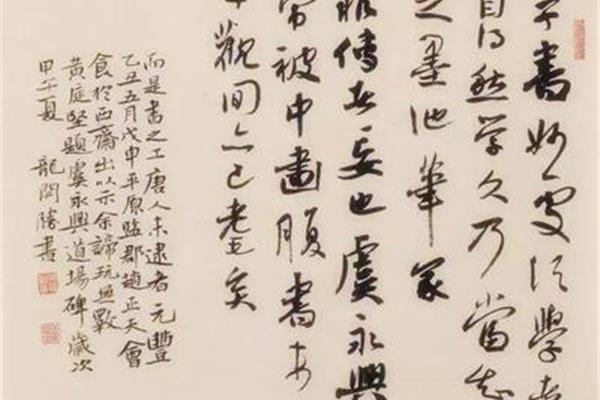 書妙處須學者
自得然學久乃當知
之墨池筆冢
非傳者妄也虞永興
常被中畫腹書末
觀間亦已耄矣
而是書之工唐人未逮者元豐
乙丑五月戊申平原監郡趙正夫會
食於西齋出以示余諦玩無斁
黃庭堅題虞永興道場碑歲次
甲午夏 龍開勝書